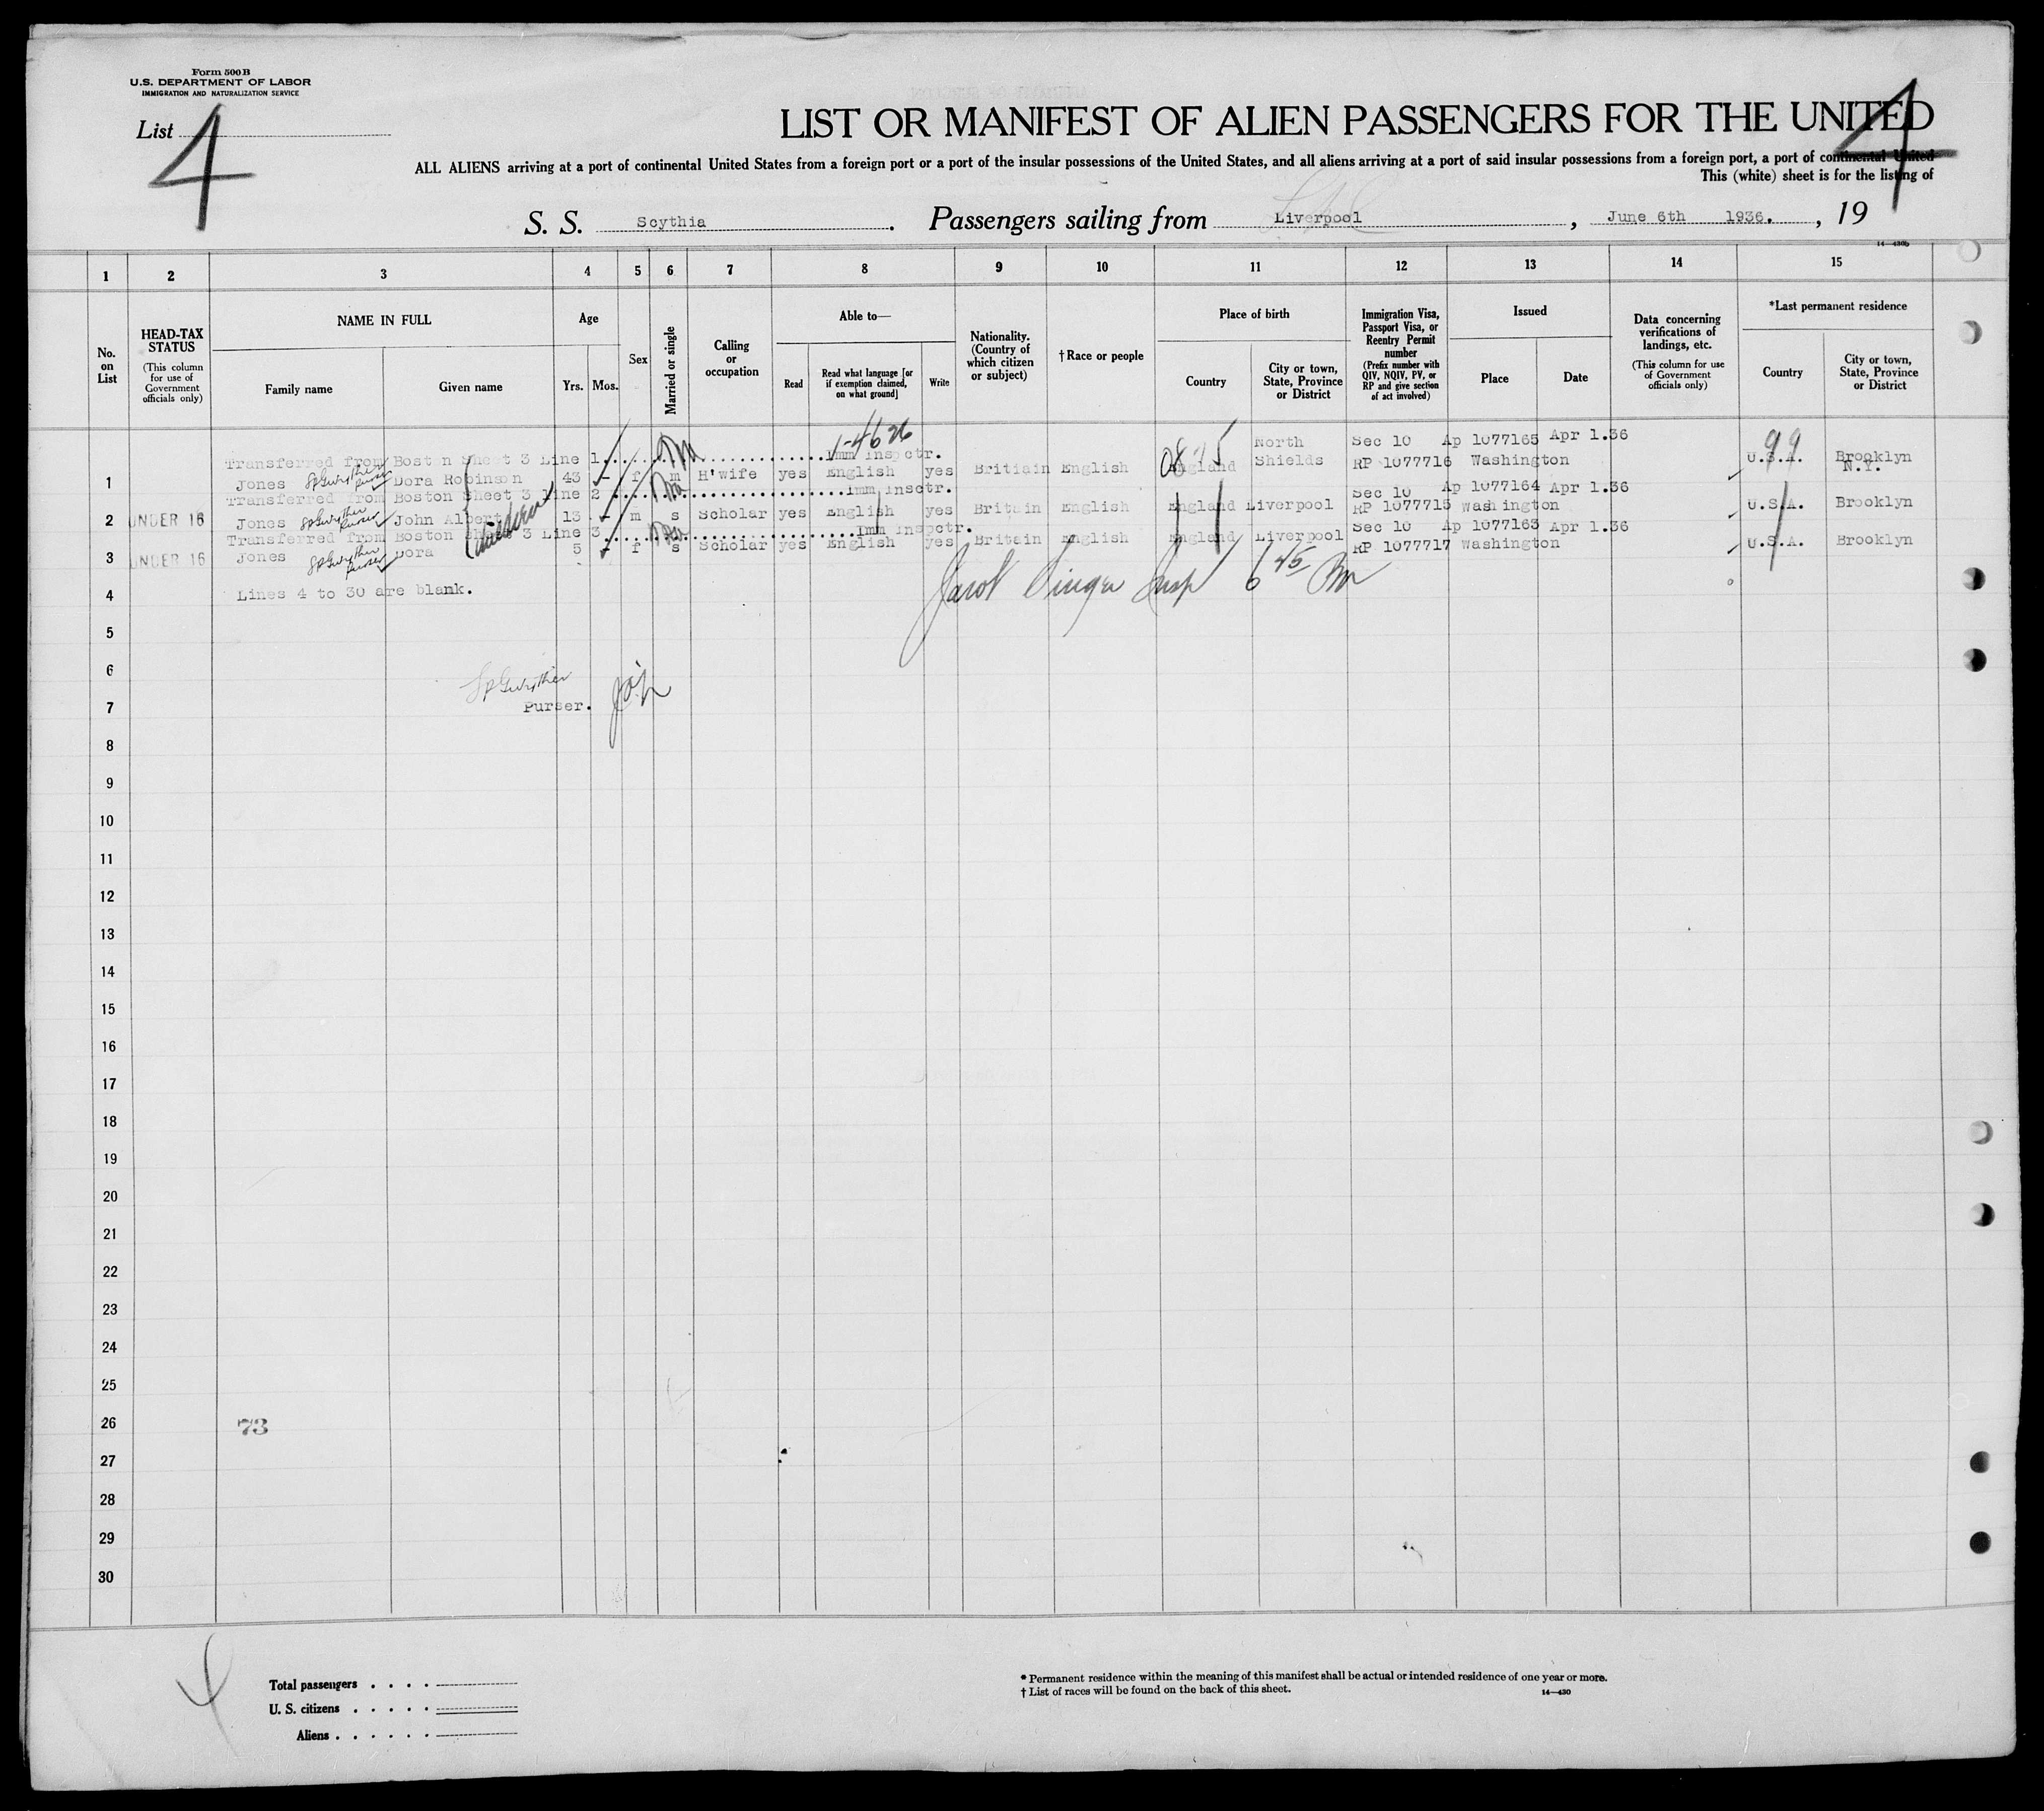 Form 500 B
U.S. DEPARTMENT OF LABOR
IMMIGRATION AND NATURALIZATION SERVICE
List 4
4
LIST OR MANIFEST OF ALIEN PASSENGERS FOR THE UNITED
ALL ALIENS arriving at a port of continental United States from a foreign port or a port of the insular possessions of the United States, and all aliens arriving at a port of said insular possessions from a foreign port, a port of continental United
This (white) sheet is for the listing of
S. S. Scythia. Passengers sailing from Liverpool, June 6th 1936. , 19
14—430b
1 2 3 4 5 6 7 8 9 10 11 12 13 14 15
No. on List
HEAD-TAX STATUS (This column for use of Government officials only)
NAME IN FULL
Family name Given name
Age
Yrs. Mos.
Sex
Married or single
Calling or occupation
Able to—
Read Read what language [or if exemption claimed, on what ground] Write
Nationality. (Country of which citizen or subject)
†Race or people
Place of birth
Country City or town, State, Province or District
Immigration Visa, Passport Visa, or Reentry Permit number (Prefix number with QIV, NQIV, PV, or RP and give section of act involved)
Issued
Place Date
Data concerning verifications of landings, etc. (This column for use of Government officials only)
*Last permanent residence
Country City or town, State, Province or District
Transferred from Boston Sheet 3 Line 1 Imm Inspctr. North Sec 10 Ap 1077165 Apr 1.36
1 Jones Dora Robinson 43 - f m H'wife yes English yes Britiain English England Shields RP 1077716 Washington U.S.A. Brooklyn N.Y.
Transferred from Boston Sheet 3 Line 2 Imm Insctr. Sec 10 Ap 1077164 Apr 1.36
2 UNDER 16 Jones John Albert 13 - m s Scholar yes English yes Britain English England Liverpool RP 1077715 Washington U.S.A. Brooklyn
Transferred from Boston Sheet 3 Line 3 Imm Inspctr. Sec 10 Ap 1077163 Apr 1.36
3 UNDER 16 Jones Dora 5 - f s Scholar yes English yes Britain English England Liverpool RP 1077717 Washington U.S.A. Brooklyn
4 Lines 4 to 30 are blank.
5
6
7 Purser.
8
9
10
11
12
13
14
15
16
17
18
19
20
21
22
23
24
25
26 73
27
28
29
30
4
Total passengers
U. S. citizens
Aliens
* Permanent residence within the meaning of this manifest shall be actual or intended residence of one year or more.
† List of races will be found on the back of this sheet. 14—430